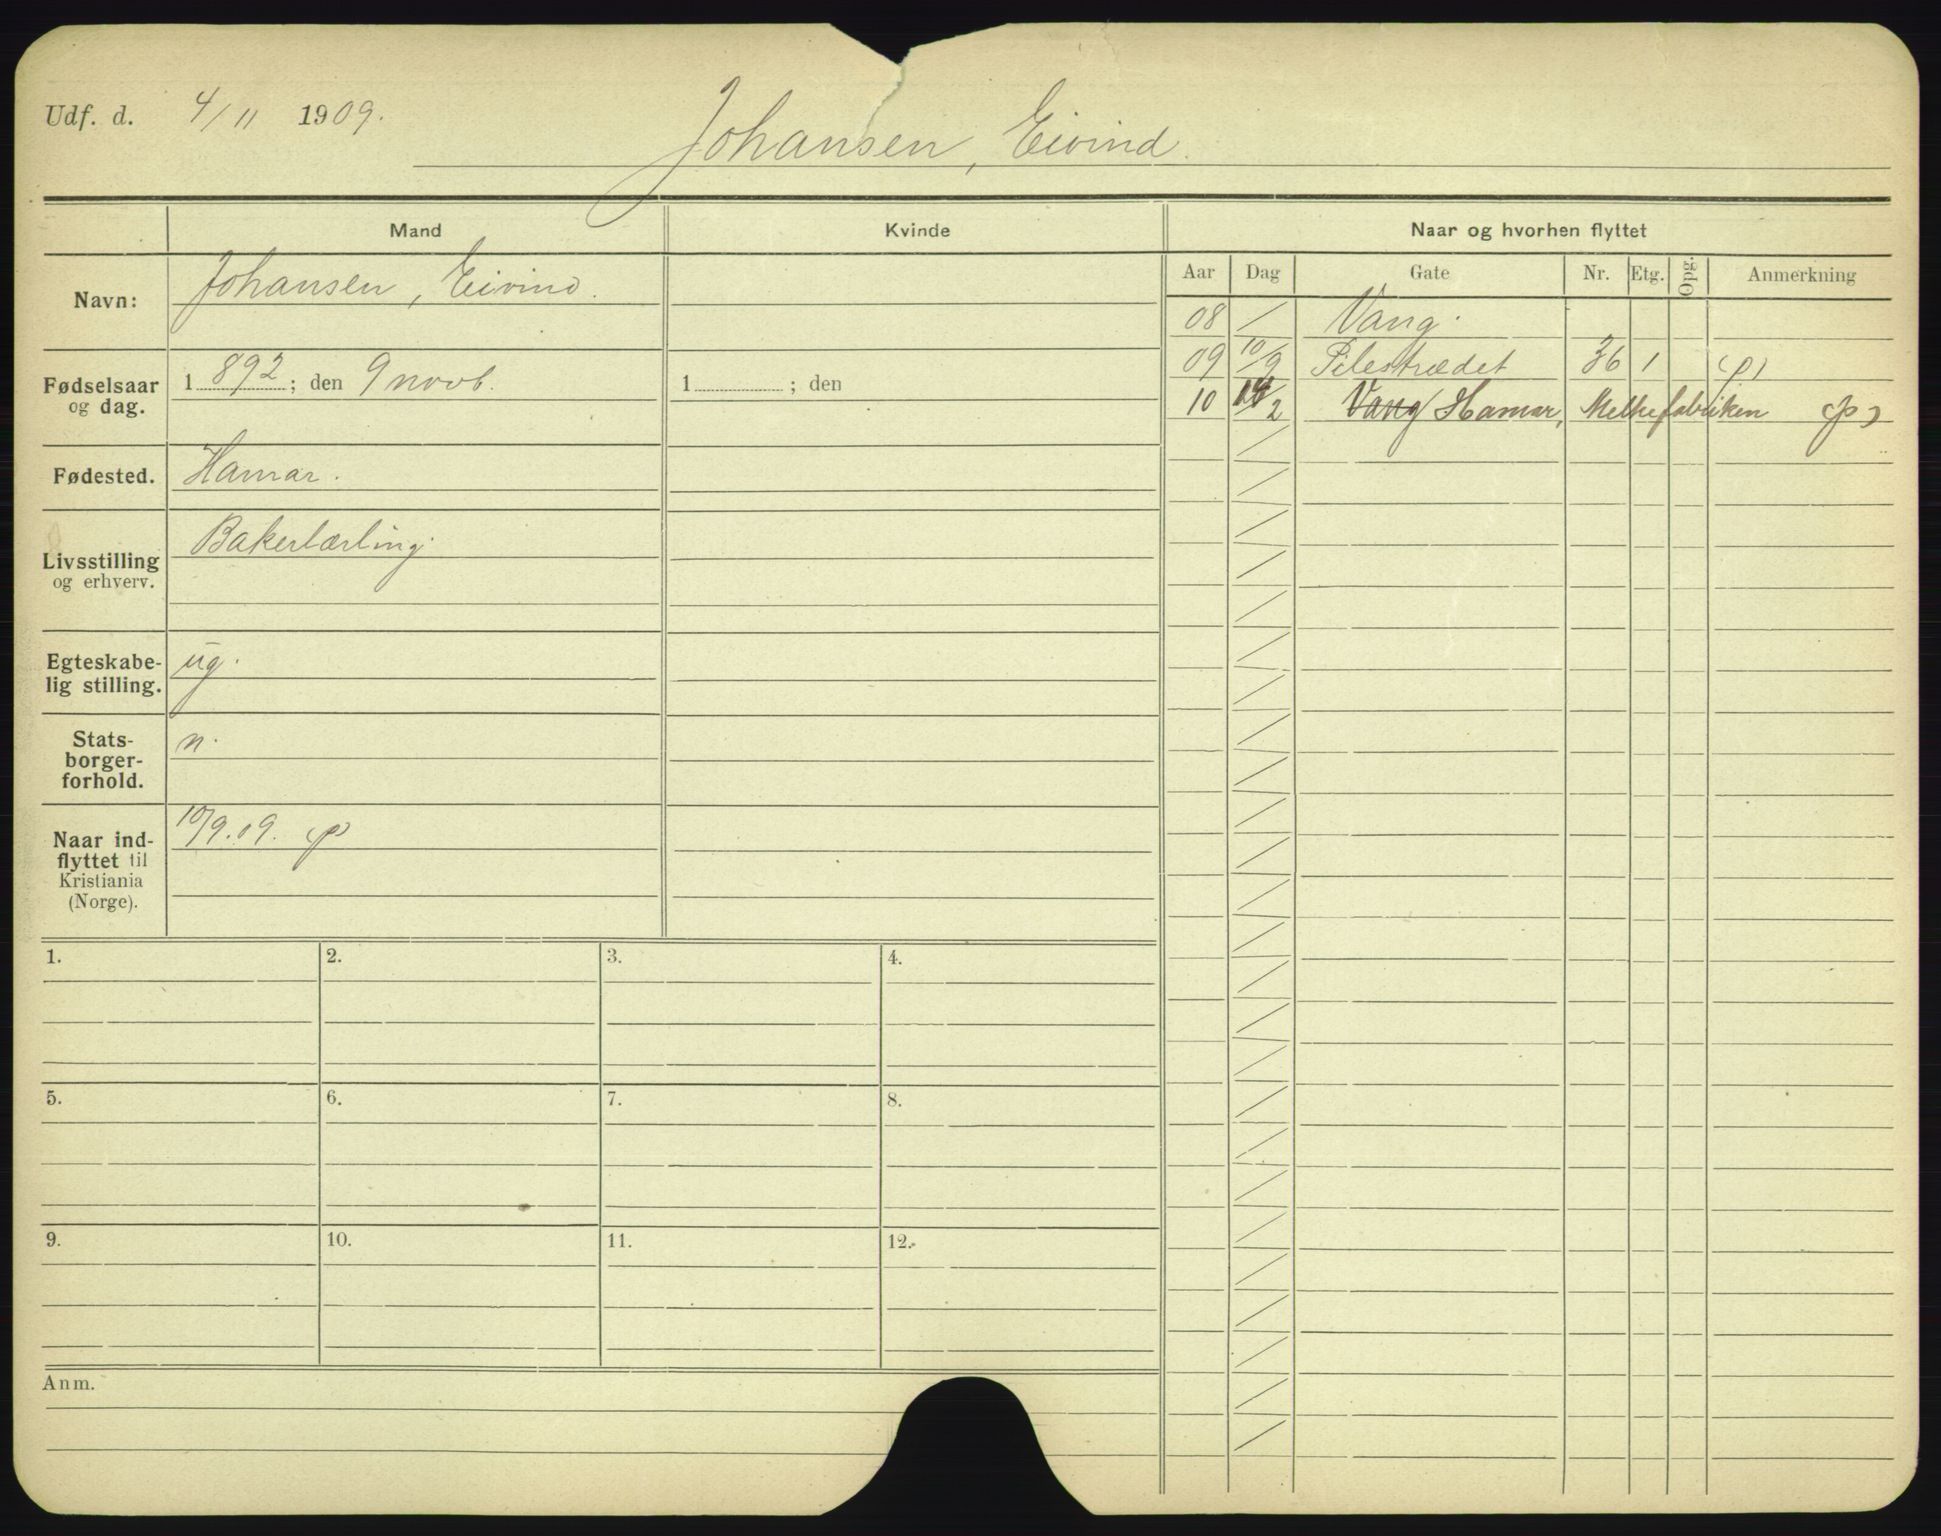 Udf. d. 4/11 1909.
Johansen, Eivind.
Mand
Kvinde
Naar og hvorhen flyttet
Navn:
Johansen, Eivind.
Aar Dag Gate Nr. Etg. Opg. Anmerkning
08 / Vang.
09 10/9 Pilestrædet 36 1 (p)
10 /2 Vang / Hamar, Melkefabriken (p)
Fødselsaar
og dag.
1892; den 9 novb.
1 ; den
Fødested.
Hamar.
Livsstilling
og erhverv.
Bakerlærling.
Egteskabe-
lig stilling.
ug.
Stats-
borger-
forhold.
n.
Naar ind-
flyttet til
Kristiania
(Norge).
10/9.09. (p)
1. 2. 3. 4.
5. 6. 7. 8.
9. 10. 11. 12.
Anm.